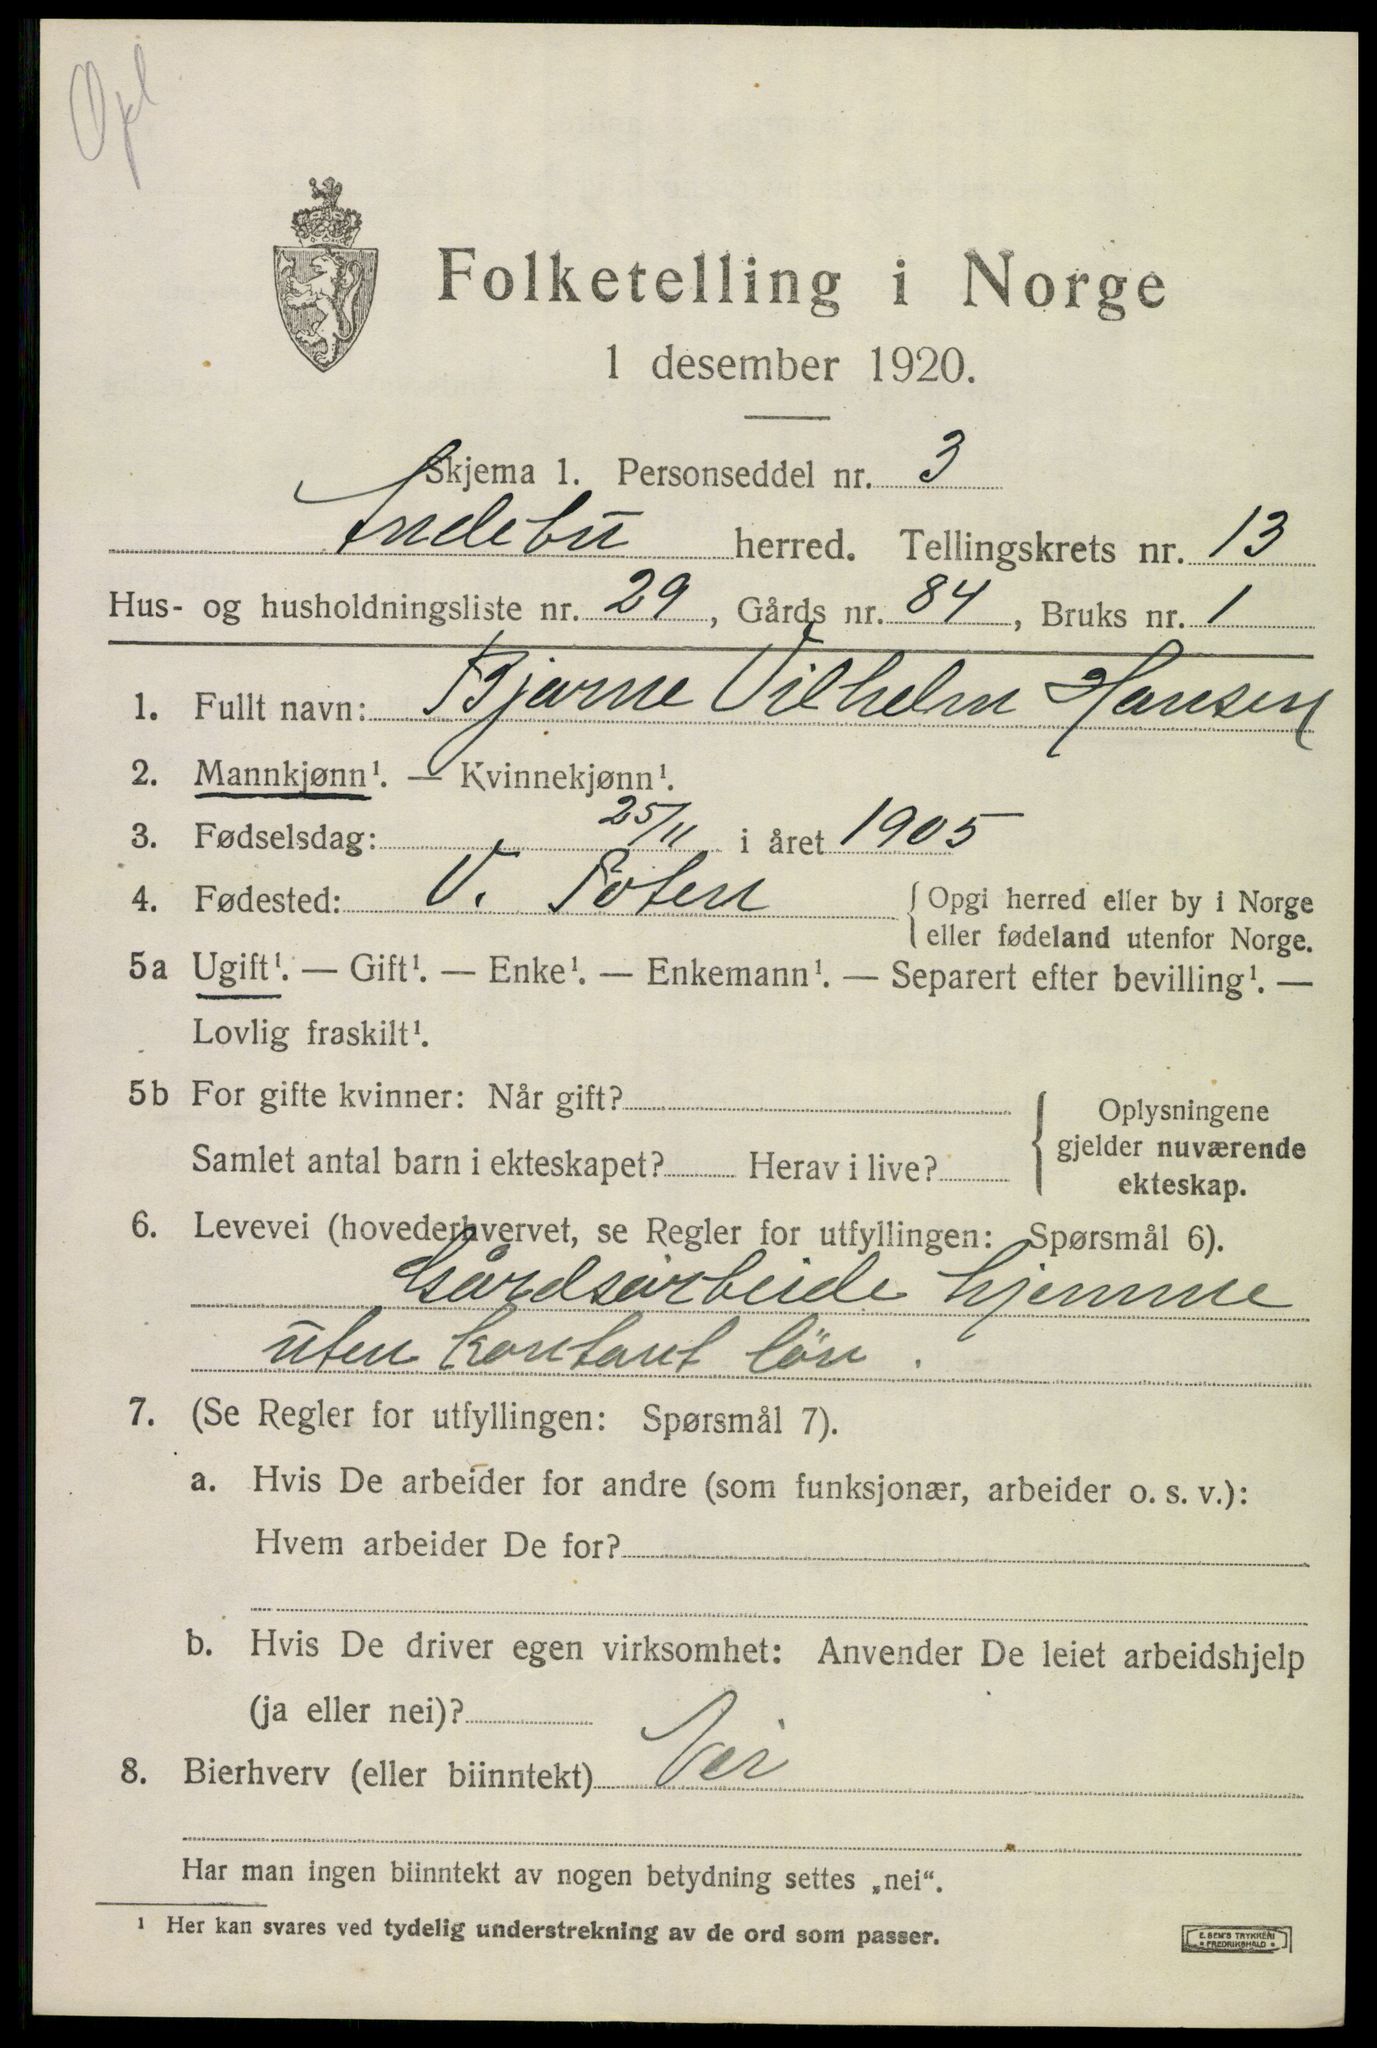 Opl
Folketelling i Norge
1 desember 1920.
Skjema 1. Personseddel nr. 3
Andebu herred. Tellingskrets nr. 13
Hus- og husholdningsliste nr. 29, Gårds nr. 84, Bruks nr. 1
1. Fullt navn: Bjarne Vilhelm Hansen
2. Mannkjønn¹. — Kvinnekjønn¹.
3. Fødselsdag: 25/11 i året 1905
4. Fødested: V. Toten { Opgi herred eller by i Norge
eller fødeland utenfor Norge.
5a Ugift¹. — Gift¹. — Enke¹. — Enkemann¹. — Separert efter bevilling¹. —
Lovlig fraskilt¹.
5b For gifte kvinner: Når gift? { Oplysningene
Samlet antal barn i ekteskapet? Herav i live? gjelder nuværende
ekteskap.
6. Levevei (hovederhvervet, se Regler for utfyllingen: Spørsmål 6).
Gårdsarbeide hjemme
uten kontant løn.
7. (Se Regler for utfyllingen: Spørsmål 7).
a. Hvis De arbeider for andre (som funksjonær, arbeider o. s. v.):
Hvem arbeider De for?
b. Hvis De driver egen virksomhet: Anvender De leiet arbeidshjelp
(ja eller nei)?
8. Bierhverv (eller biinntekt) Nei
Har man ingen biinntekt av nogen betydning settes „nei“.
¹ Her kan svares ved tydelig understrekning av de ord som passer.
E. SEM'S TRYKKERI
• FREDRIKSHALD •